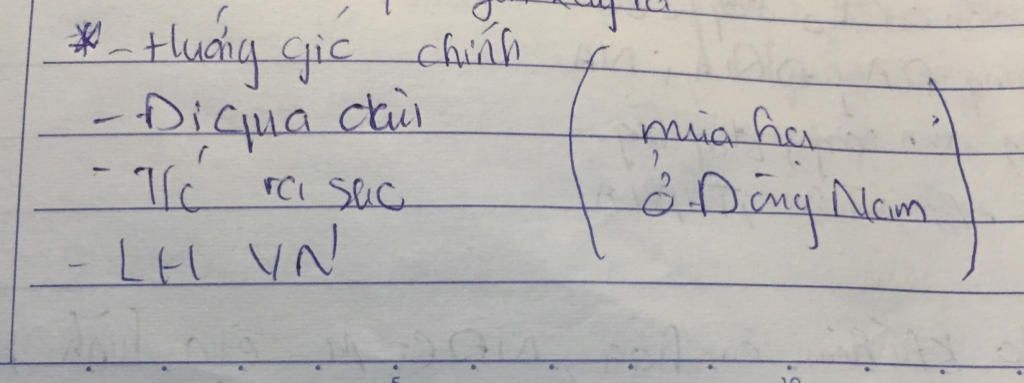 * - Hướng gió chính
- Đi qua đâu
- T/c ra sao
- LH VN
(mùa hạ
ở Đông Nam)